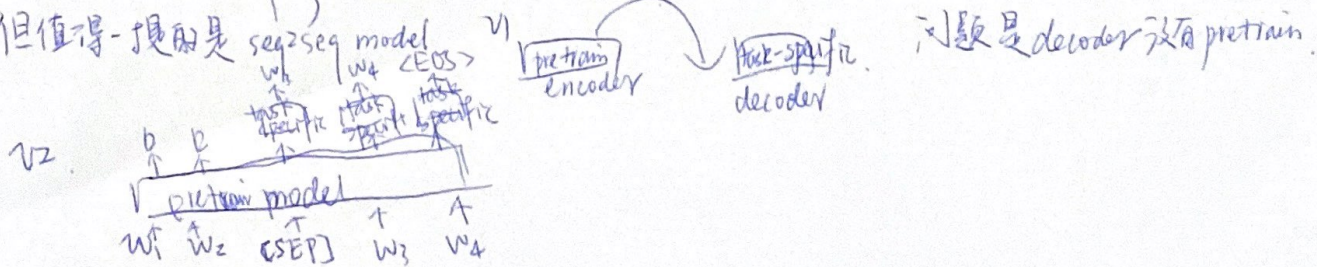 但值得一提的是 seq2seq model v1 pretrain encoder task-specific decoder 问题是decoder没有pretrain.
w3 w4 <EOS>
task specific task specific task specific
v2
pretrain model
w1 w2 [SEP] w3 w4